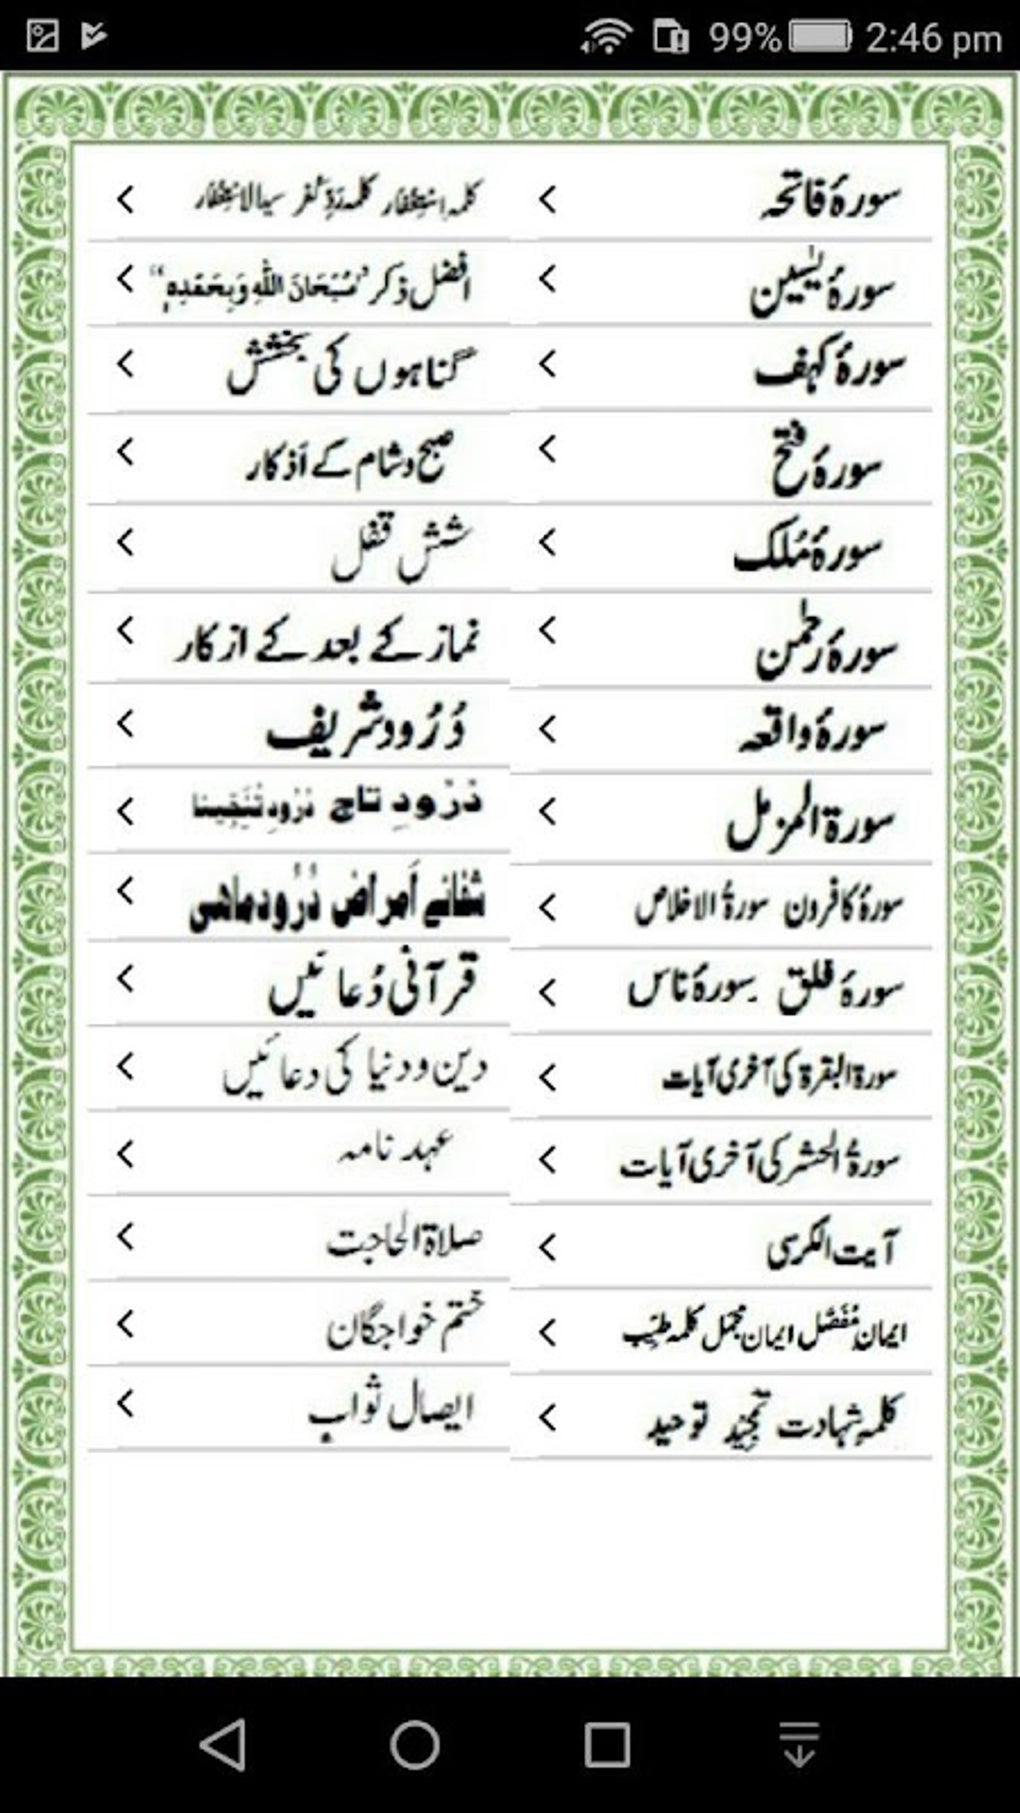 99% 2:46 pm
سورۂ فاتحہ
سورۂ یٰسین
سورۂ کہف
سورۂ فتح
سورۂ مُلک
سورۂ رحمٰن
سورۂ واقعہ
سورۃ المزمل
سورۂ کافرون سورۃُ الاخلاص
سورۂ فلق سورۂ ناس
سورۃ البقرۃ کی آخری آیات
سورۃُ الحشر کی آخری آیات
آیت الکرسی
ایمان مُفَصَّل ایمان مجمل کلمہ طیّب
کلمہ شہادت تمجید توحید
کلمہ استغفار کلمہ ردِّ کفر سید الاستغفار
افضل ذکر "سُبْحَانَ اللّٰهِ وَبِحَمْدِهٖ"
گناہوں کی بخشش
صبح و شام کے اَذکار
شش قفل
نماز کے بعد کے ازکار
دُرُود شریف
دُرُودِ تاج دُرُودِ تُنَجِّینا
شفائے اَمراض دُرُود ماھی
قرآنی دُعائیں
دین و دنیا کی دعائیں
عہد نامہ
صلاۃ الحاجت
ختم خواجگان
ایصال ثواب